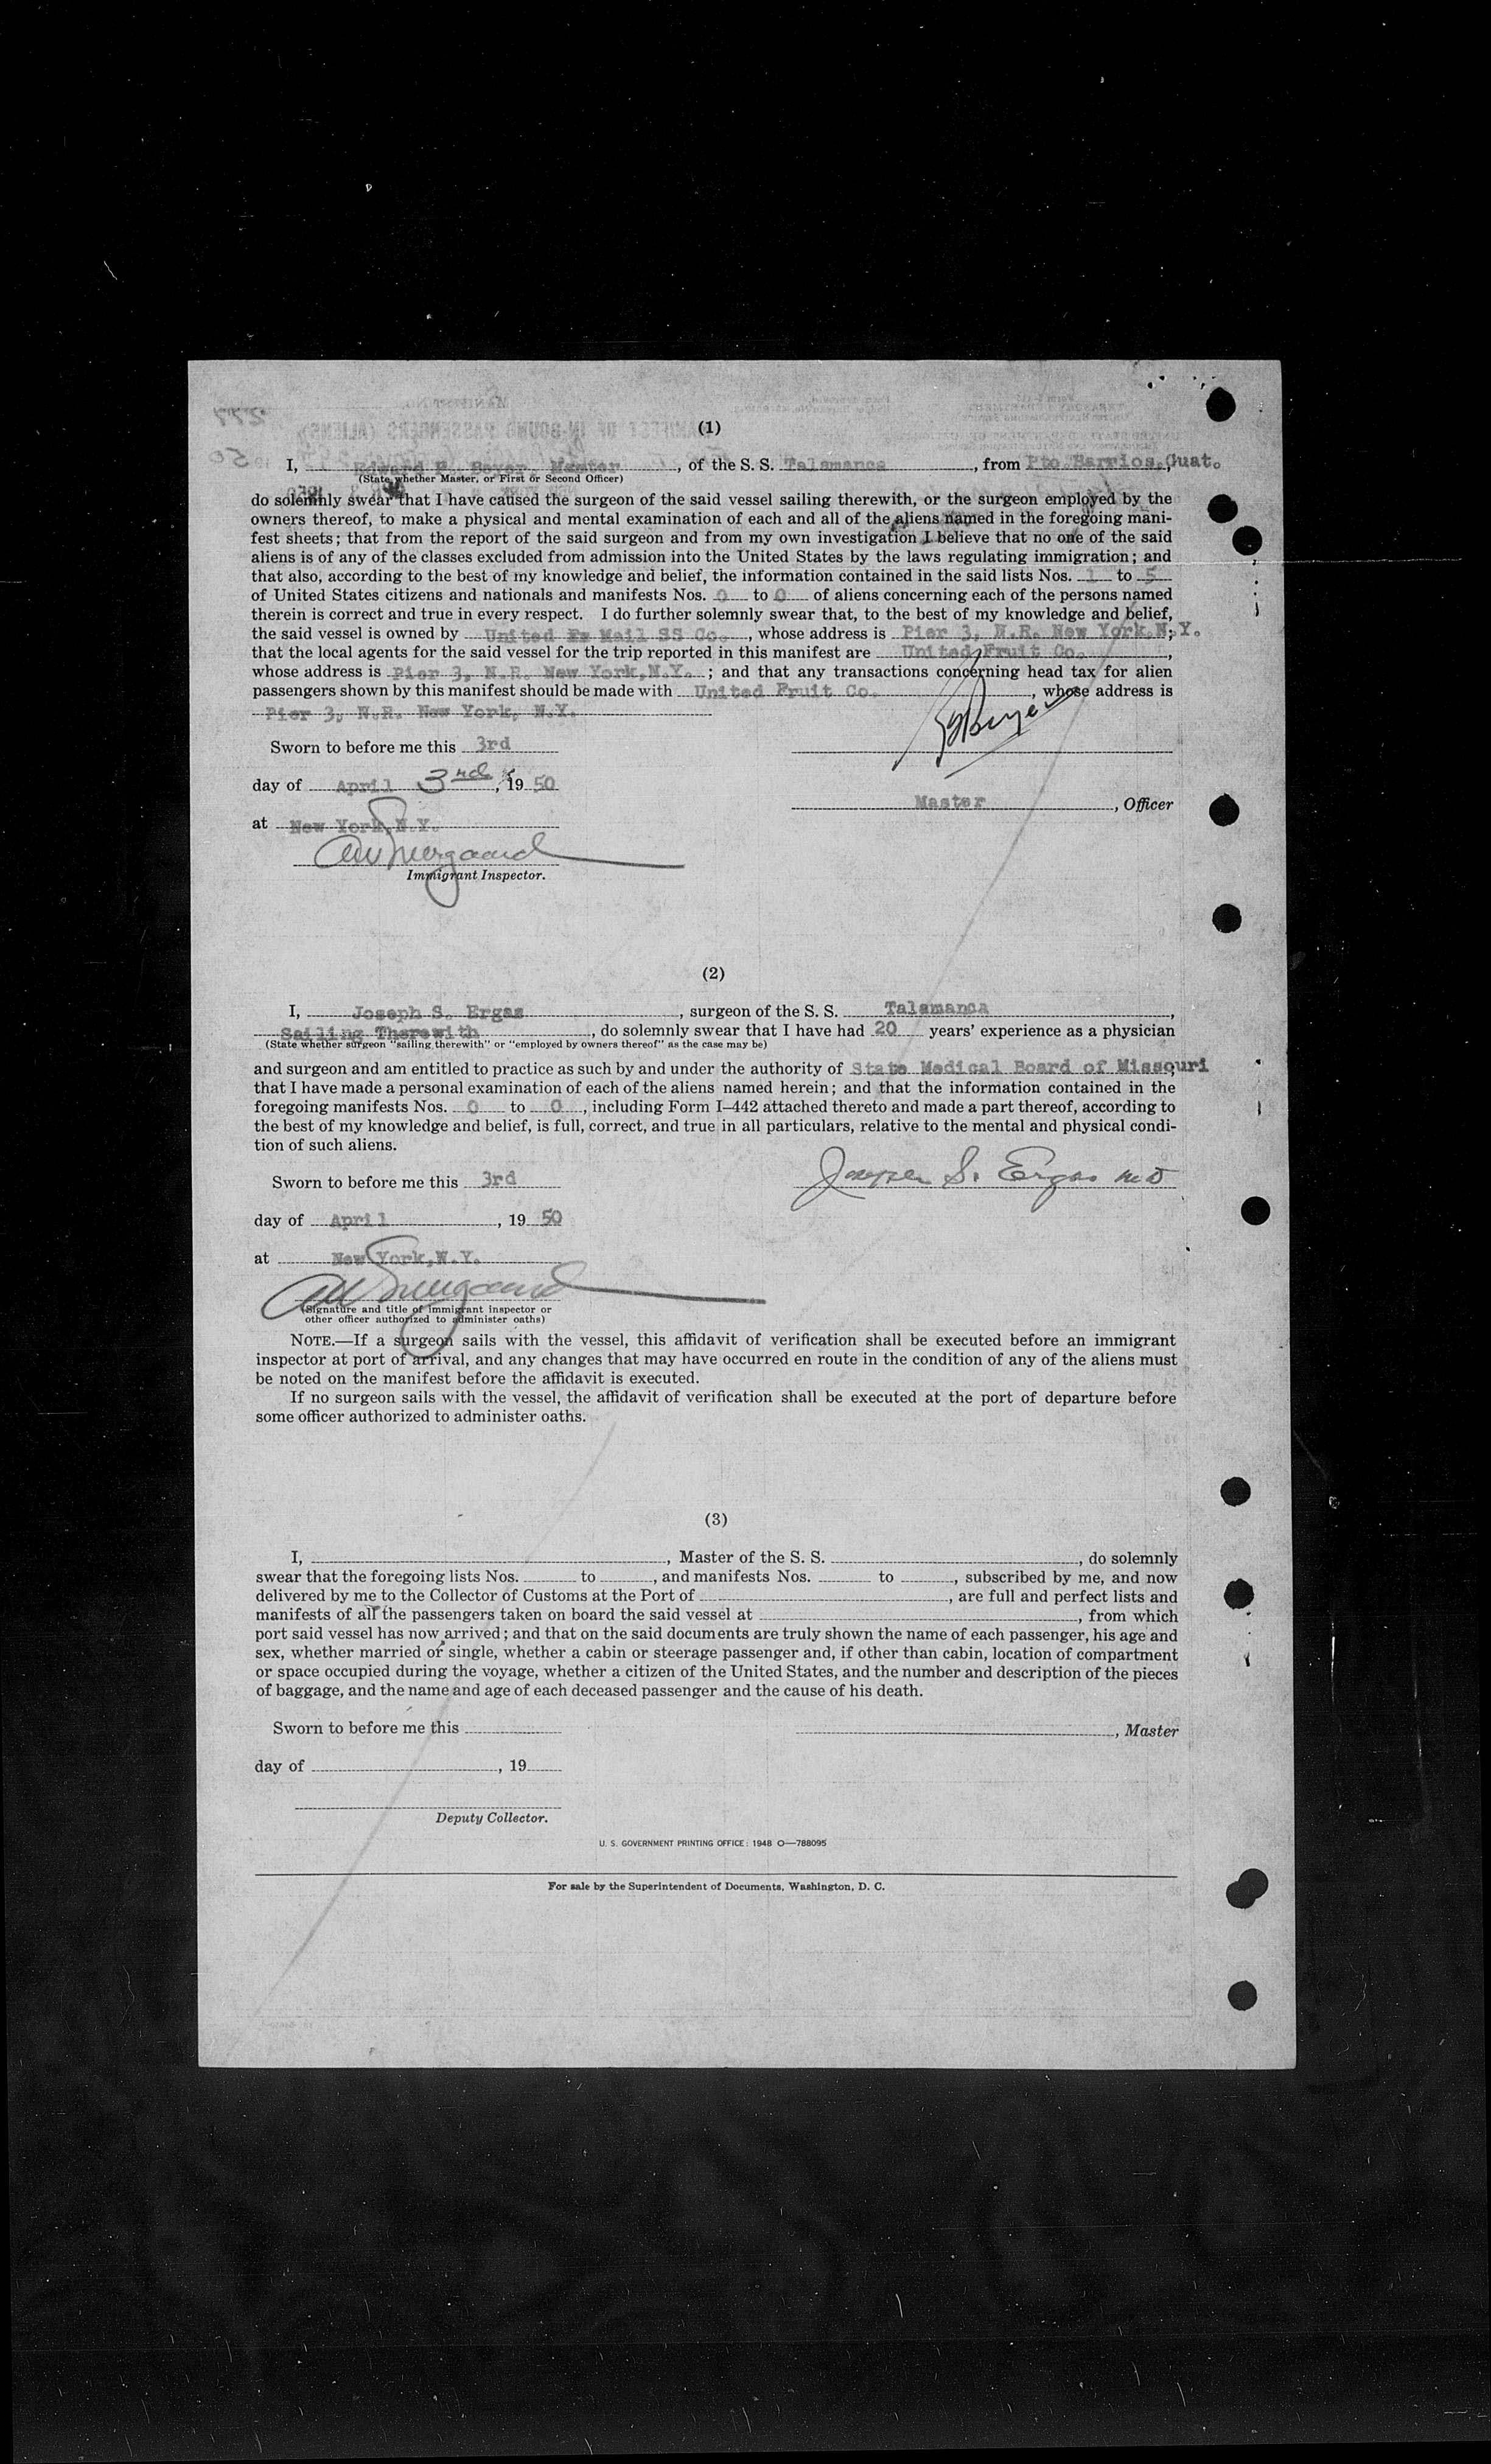 (1)
I, Edward P. Boyer, Master, of the S. S. Talamanca, from Pto Barrios, Guat.
(State whether Master, or First or Second Officer)
do solemnly swear that I have caused the surgeon of the said vessel sailing therewith, or the surgeon employed by the
owners thereof, to make a physical and mental examination of each and all of the aliens named in the foregoing mani-
fest sheets; that from the report of the said surgeon and from my own investigation I believe that no one of the said
aliens is of any of the classes excluded from admission into the United States by the laws regulating immigration; and
that also, according to the best of my knowledge and belief, the information contained in the said lists Nos. 1 to 5
of United States citizens and nationals and manifests Nos. 0 to 0 of aliens concerning each of the persons named
therein is correct and true in every respect. I do further solemnly swear that, to the best of my knowledge and belief,
the said vessel is owned by United Mail SS Co., whose address is Pier 3, N.R. New York, N.Y.;
that the local agents for the said vessel for the trip reported in this manifest are United Fruit Co.,
whose address is Pier 3, N.R. New York, N.Y.; and that any transactions concerning head tax for alien
passengers shown by this manifest should be made with United Fruit Co., whose address is
Pier 3, N.R. New York, N.Y.
Sworn to before me this 3rd
day of April 3rd, 1950
Master, Officer
at New York, N.Y.
Immigrant Inspector.
(2)
I, Joseph S. Ergas, surgeon of the S. S. Talamanca,
Sailing Therewith, do solemnly swear that I have had 20 years' experience as a physician
(State whether surgeon "sailing therewith" or "employed by owners thereof" as the case may be)
and surgeon and am entitled to practice as such by and under the authority of State Medical Board of Missouri;
that I have made a personal examination of each of the aliens named herein; and that the information contained in the
foregoing manifests Nos. 0 to 0, including Form I-442 attached thereto and made a part thereof, according to
the best of my knowledge and belief, is full, correct, and true in all particulars, relative to the mental and physical condi-
tion of such aliens.
Joseph S. Ergas MD
Sworn to before me this 3rd
day of April, 1950
at New York, N.Y.
(Signature and title of immigrant inspector or
other officer authorized to administer oaths)
NOTE.—If a surgeon sails with the vessel, this affidavit of verification shall be executed before an immigrant
inspector at port of arrival, and any changes that may have occurred en route in the condition of any of the aliens must
be noted on the manifest before the affidavit is executed.
If no surgeon sails with the vessel, the affidavit of verification shall be executed at the port of departure before
some officer authorized to administer oaths.
(3)
I, , Master of the S. S. , do solemnly
swear that the foregoing lists Nos. to , and manifests Nos. to , subscribed by me, and now
delivered by me to the Collector of Customs at the Port of , are full and perfect lists and
manifests of all the passengers taken on board the said vessel at , from which
port said vessel has now arrived; and that on the said documents are truly shown the name of each passenger, his age and
sex, whether married or single, whether a cabin or steerage passenger and, if other than cabin, location of compartment
or space occupied during the voyage, whether a citizen of the United States, and the number and description of the pieces
of baggage, and the name and age of each deceased passenger and the cause of his death.
Sworn to before me this
, Master
day of , 19
Deputy Collector.
U. S. GOVERNMENT PRINTING OFFICE: 1948 O—788095
For sale by the Superintendent of Documents, Washington, D. C.